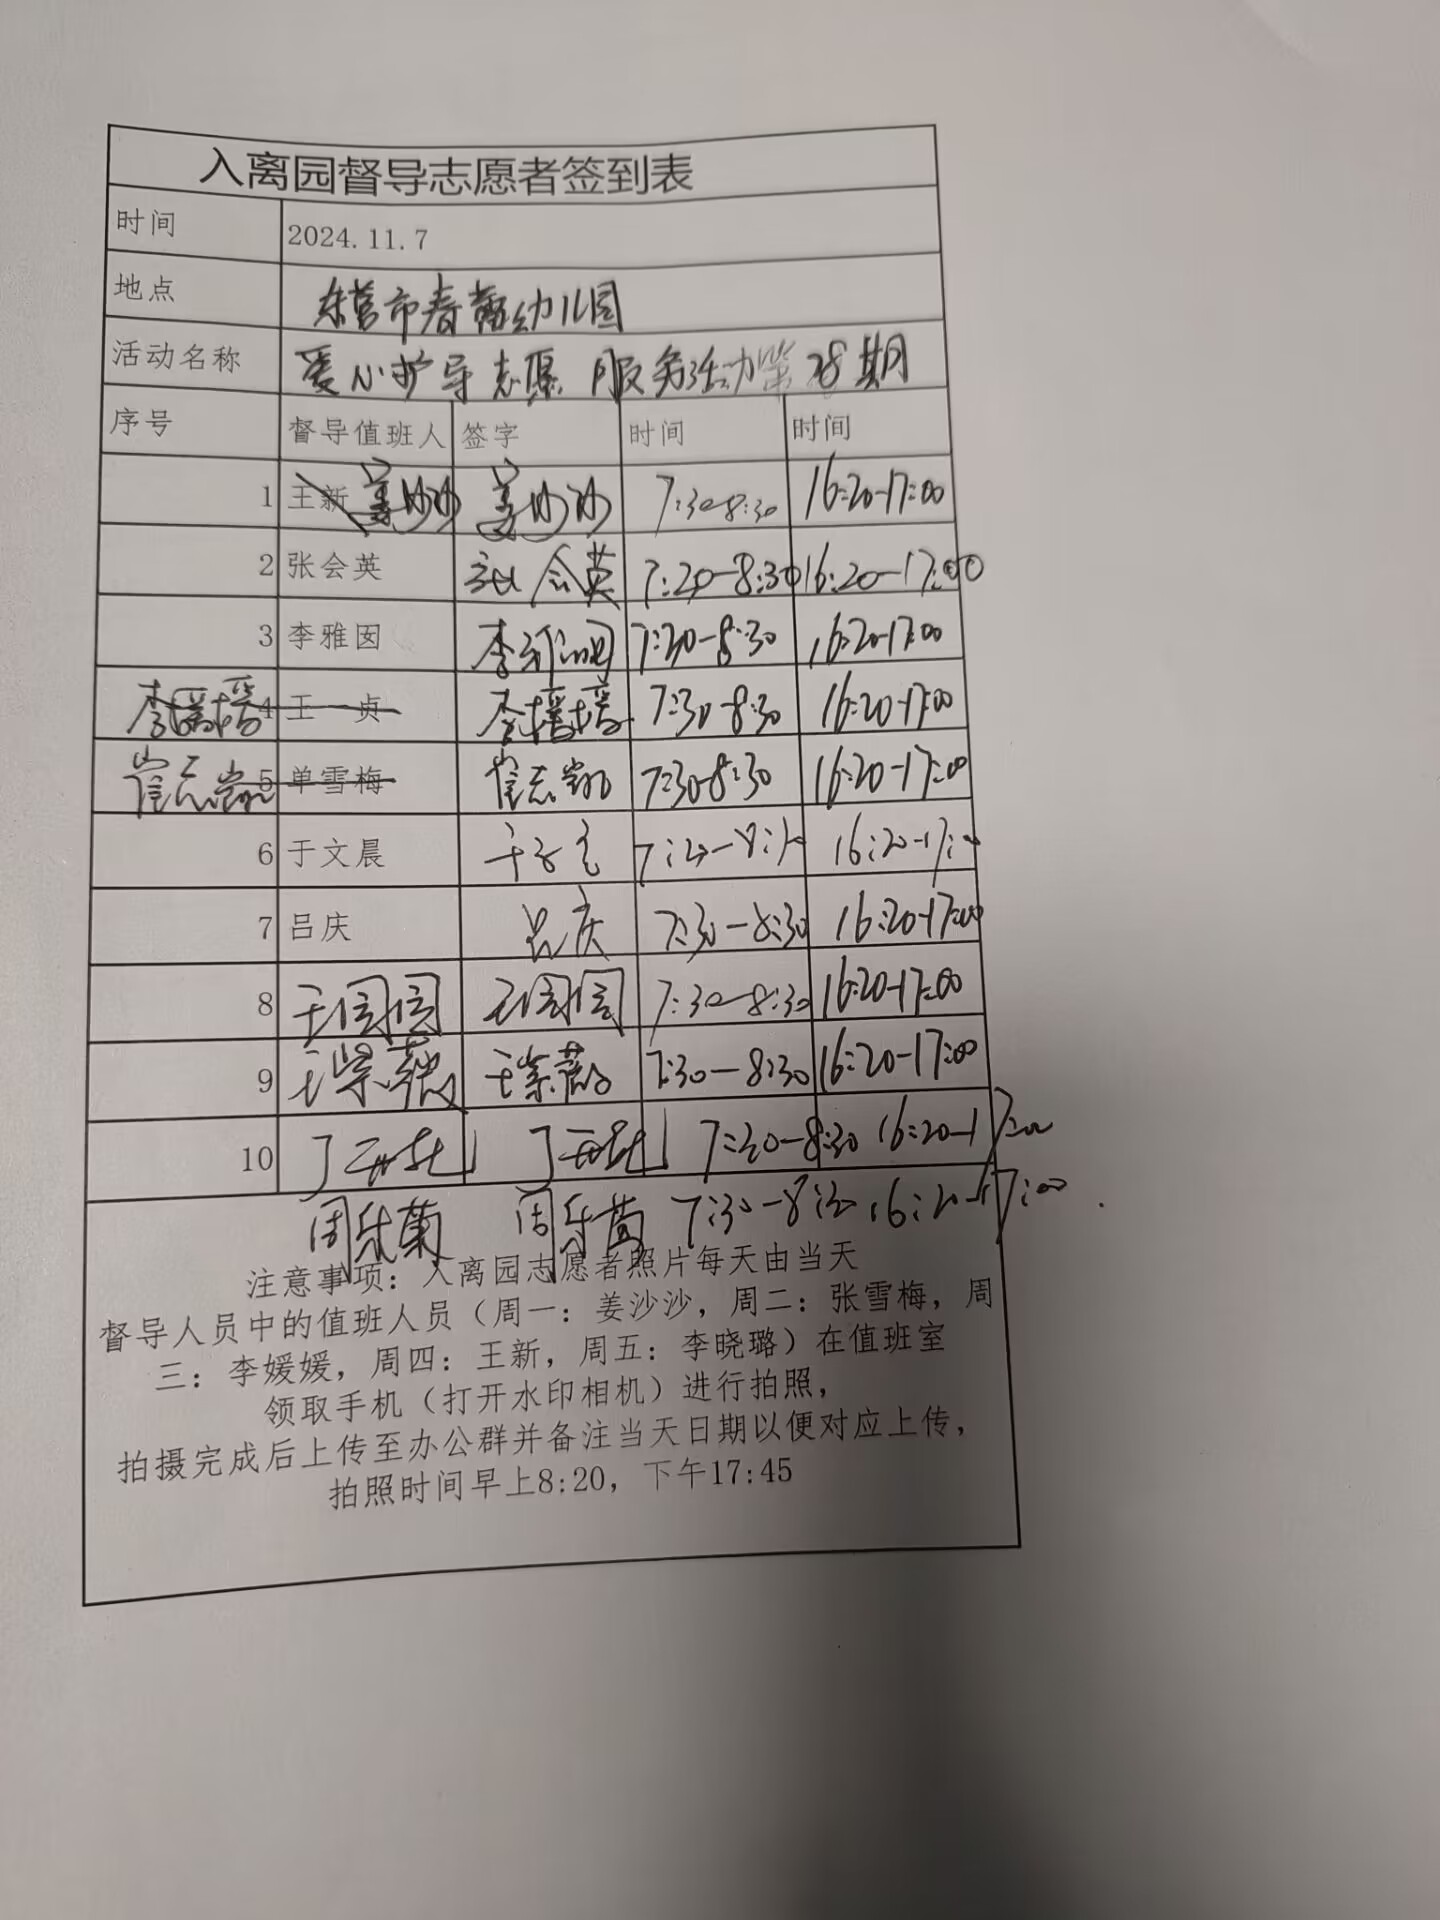 入离园督导志愿者签到表
时间 2024.11.7
地点 东营市春蕾幼儿园
活动名称 爱心护导志愿服务活动第28期
序号 督导值班人 签字 时间 时间
1 王新 姜沙沙 姜沙沙 7:30-8:30 16:20-17:00
2 张会英 张会英 7:20-8:30 16:20-17:00
3 李雅囡 李雅囡 7:30-8:30 16:20-17:00
李媛媛 4 王一贞 李媛媛 7:30-8:30 16:20-17:00
崔志凯 5 单雪梅 崔志凯 7:30-8:30 16:20-17:00
6 于文晨 16:20-17:00
7 吕庆 吕庆 7:30-8:30 16:20-17:00
8 王圆圆 王圆圆 7:30-8:30 16:20-17:00
9 王紫薇 王紫薇 7:30-8:30 16:20-17:00
10 丁 丁 7:30-8:30 16:20-17:00
周乐菊 周乐菊 7:30-8:30 16:20-17:00
注意事项：入离园志愿者照片每天由当天
督导人员中的值班人员（周一：姜沙沙，周二：张雪梅，周
三：李媛媛，周四：王新，周五：李晓璐）在值班室
领取手机（打开水印相机）进行拍照，
拍摄完成后上传至办公群并备注当天日期以便对应上传，
拍照时间早上8:20，下午17:45